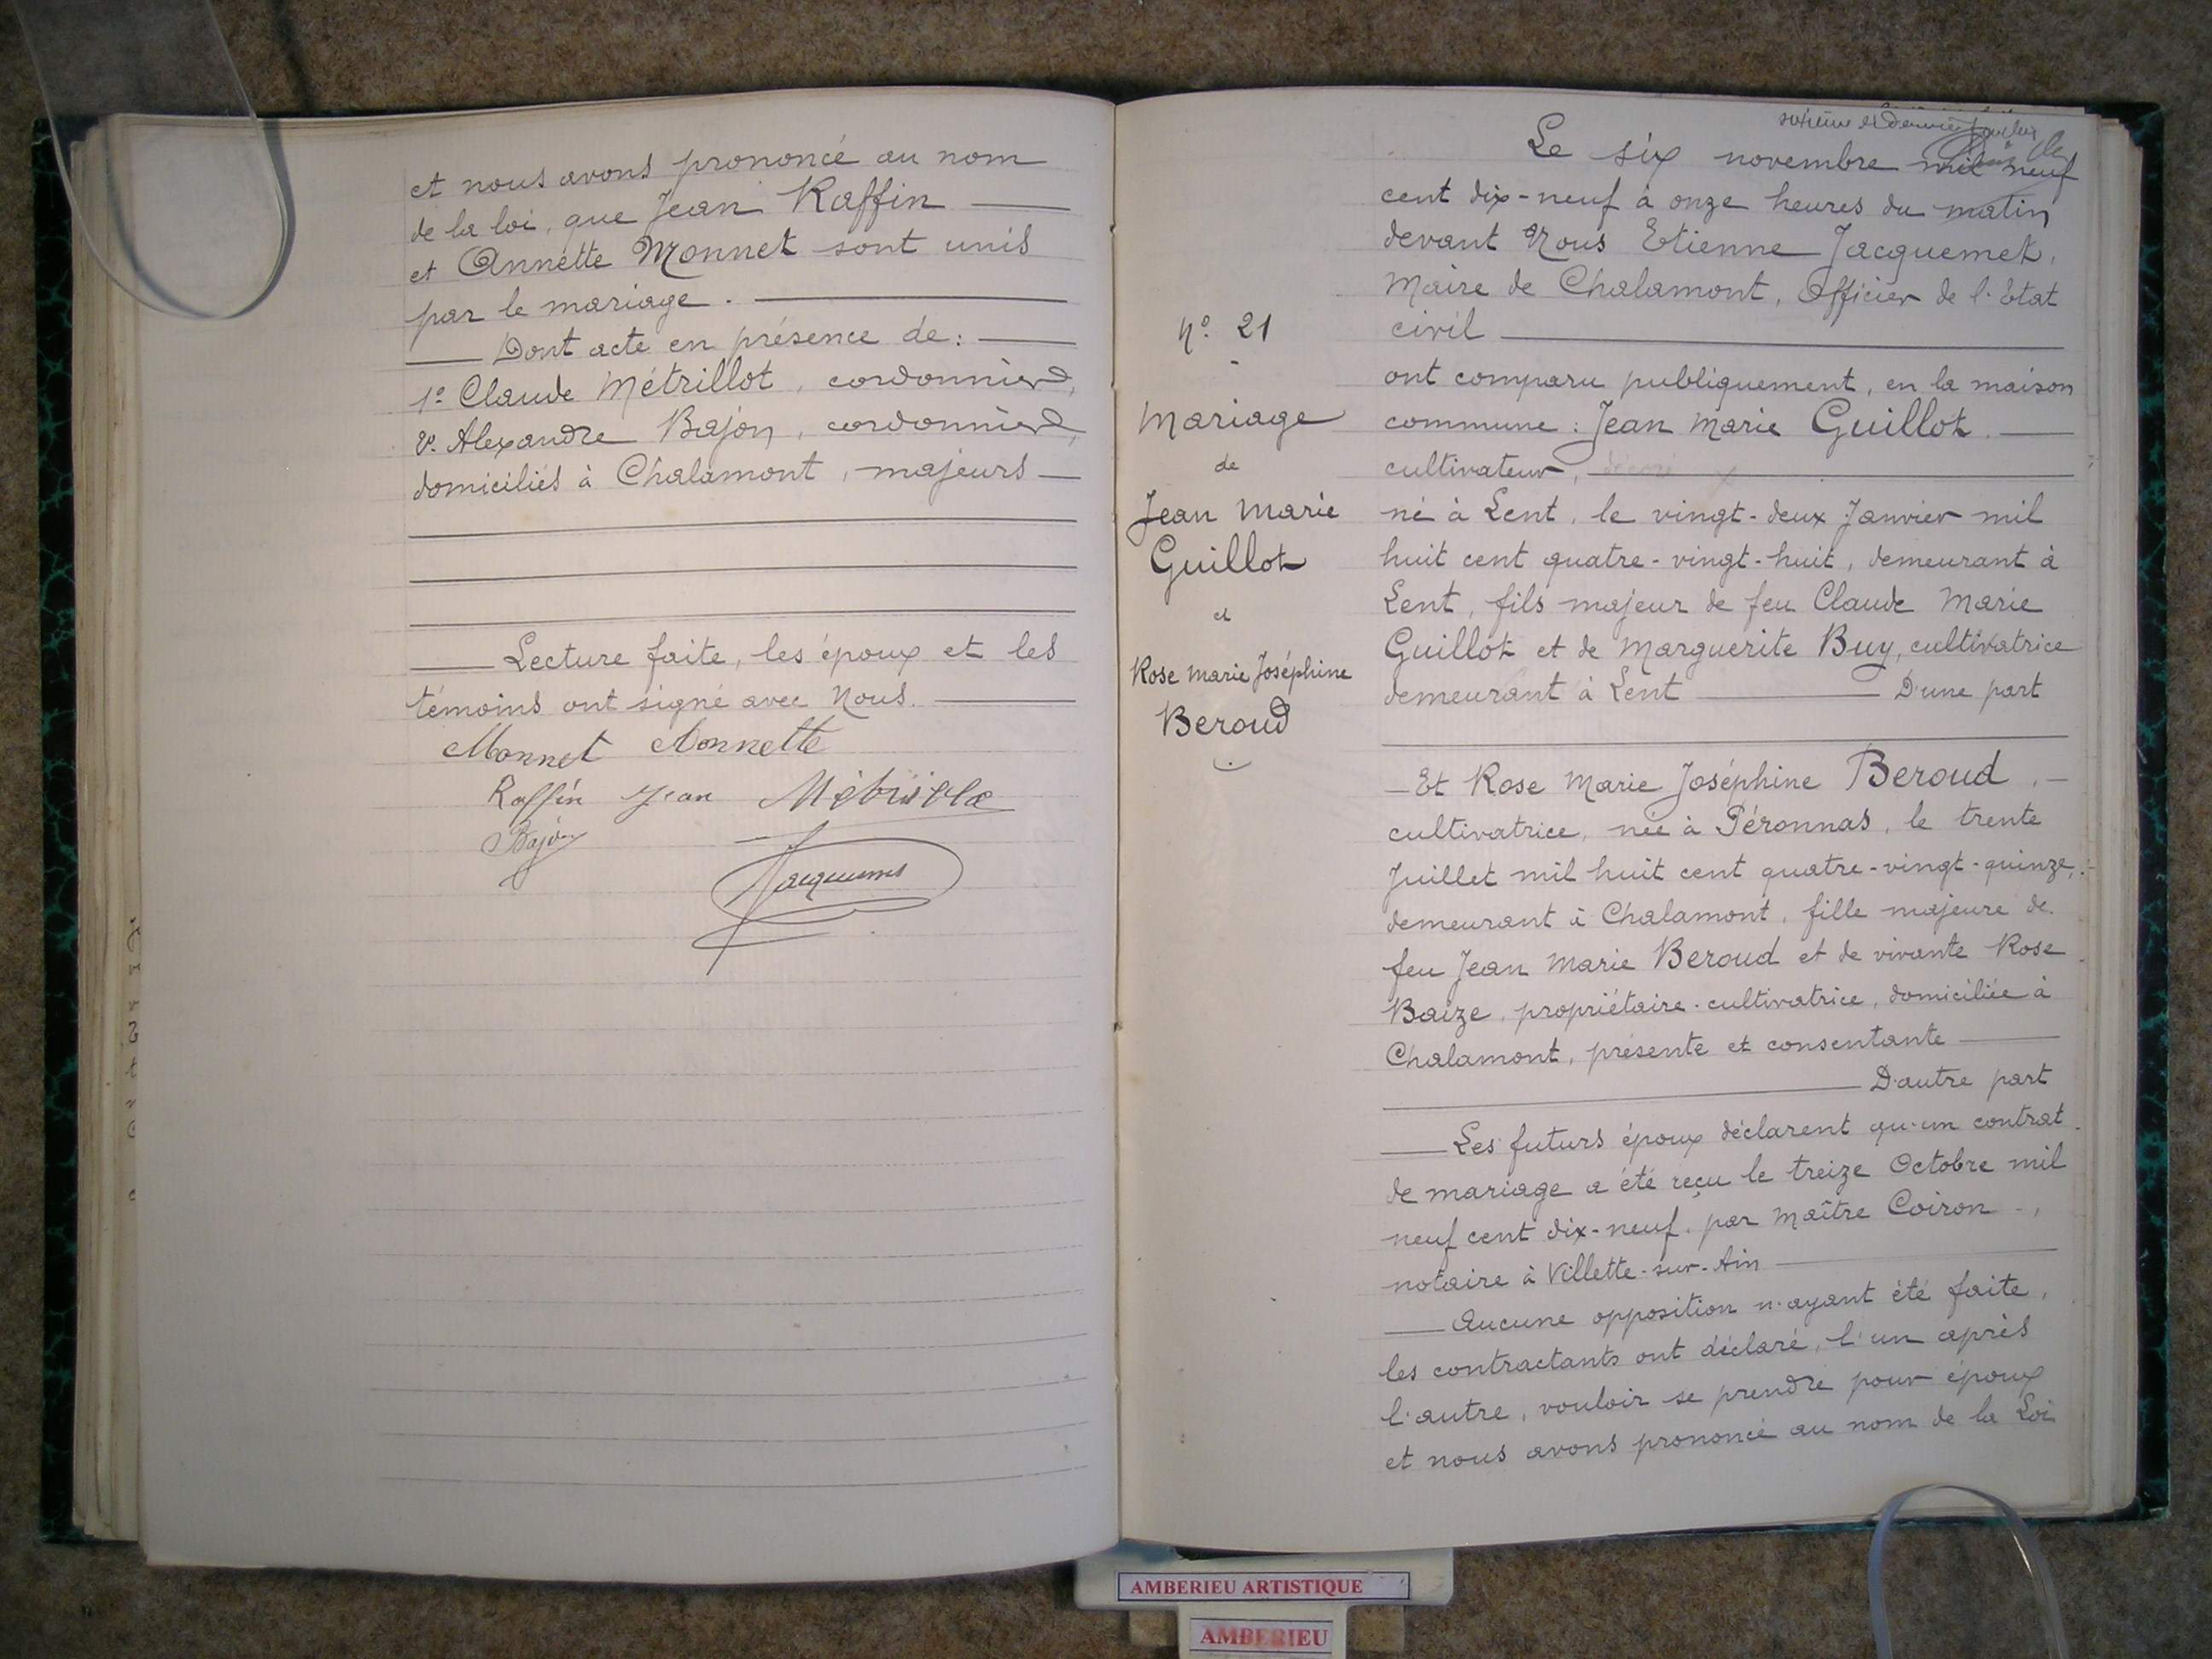 et nous avons prononcé au nom
de la loi, que Jean Raffin
et Annette Monnet sont unis
par le mariage.
Dont acte en présence de :
1º Claude Métrillot, cordonnier,
2º Alexandre Bajon, cordonnier,
domiciliés à Chalamont, majeurs
Lecture faite, les époux et les
témoins ont signé avec Nous.
Monnet Annette
Raffin Jean
Bajon
Jacquemet
nº 21
Mariage
de
Jean Marie
Guillot
et
Rose Marie Joséphine
Beroud
et dernier
Le six novembre mil neuf
cent dix-neuf à onze heures du matin
devant Nous Etienne Jacquemet,
Maire de Chalamont, Officier de l'Etat
civil
ont comparu publiquement, en la maison
commune : Jean Marie Guillot
cultivateur,
né à Lent, le vingt-deux Janvier mil
huit cent quatre-vingt-huit, demeurant à
Lent, fils majeur de feu Claude Marie
Guillot et de Marguerite Buy, cultivatrice
demeurant à Lent D'une part
Et Rose Marie Joséphine Beroud,
cultivatrice, née à Péronnas, le trente
Juillet mil huit cent quatre-vingt-quinze,
demeurant à Chalamont, fille majeure de
feu Jean Marie Beroud et de vivante Rose
Baize, propriétaire-cultivatrice, domiciliée à
Chalamont, présente et consentante
D'autre part
Les futurs époux déclarent qu'un contrat
de mariage a été reçu le treize Octobre mil
neuf cent dix-neuf, par Maître Coiron,
notaire à Villette-sur-Ain
Aucune opposition n'ayant été faite,
les contractants ont déclaré, l'un après
l'autre, vouloir se prendre pour époux
et nous avons prononcé au nom de la Loi
AMBERIEU ARTISTIQUE
AMBERIEU